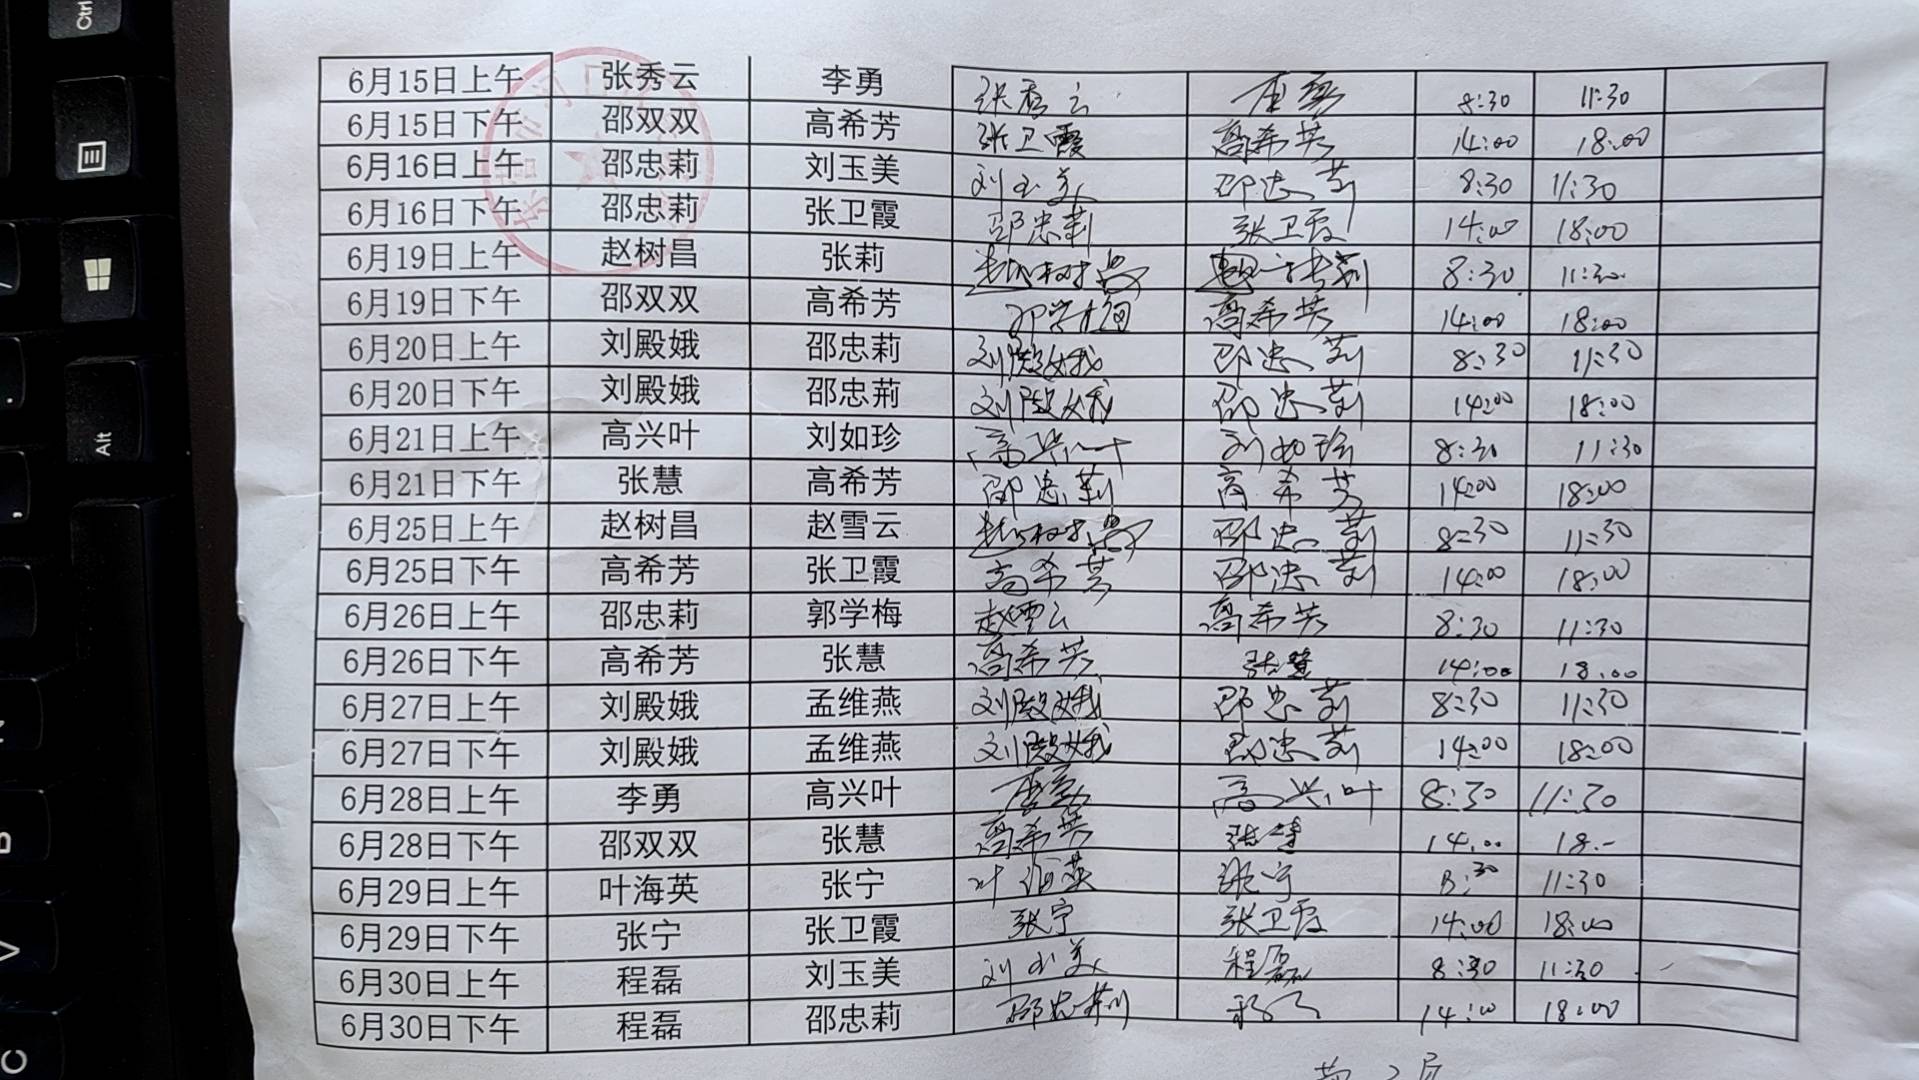 Ctrl
Alt
N
B
V
C
6月15日上午 张秀云 李勇 张秀云 李勇 8:30 11:30
6月15日下午 邵双双 高希芳 张卫霞 高希芳 14:00 18:00
6月16日上午 邵忠莉 刘玉美 刘玉美 邵忠莉 8:30 11:30
6月16日下午 邵忠莉 张卫霞 邵忠莉 张卫霞 14:00 18:00
6月19日上午 赵树昌 张莉 赵树昌 张莉 8:30 11:30
6月19日下午 邵双双 高希芳 郭学梅 高希芳 14:00 18:00
6月20日上午 刘殿娥 邵忠莉 刘殿娥 邵忠莉 8:30 11:30
6月20日下午 刘殿娥 邵忠荊 刘殿娥 邵忠莉 14:00 18:00
6月21日上午 高兴叶 刘如珍 高兴叶 刘如珍 8:30 11:30
6月21日下午 张慧 高希芳 邵忠莉 高希芳 14:00 18:00
6月25日上午 赵树昌 赵雪云 赵树昌 邵忠莉 8:30 11:30
6月25日下午 高希芳 张卫霞 高希芳 邵忠莉 14:00 18:00
6月26日上午 邵忠莉 郭学梅 赵雪云 高希芳 8:30 11:30
6月26日下午 高希芳 张慧 高希芳 张慧 14:00 18:00
6月27日上午 刘殿娥 孟维燕 刘殿娥 邵忠莉 8:30 11:30
6月27日下午 刘殿娥 孟维燕 刘殿娥 邵忠莉 14:00 18:00
6月28日上午 李勇 高兴叶 李勇 高兴叶 8:30 11:30
6月28日下午 邵双双 张慧 高希芳 张慧 14:00 18:-
6月29日上午 叶海英 张宁 叶海英 张宁 8:30 11:30
6月29日下午 张宁 张卫霞 张宁 张卫霞 14:00 18:00
6月30日上午 程磊 刘玉美 刘玉美 程磊 8:30 11:30
6月30日下午 程磊 邵忠莉 邵忠莉 14:00 18:00